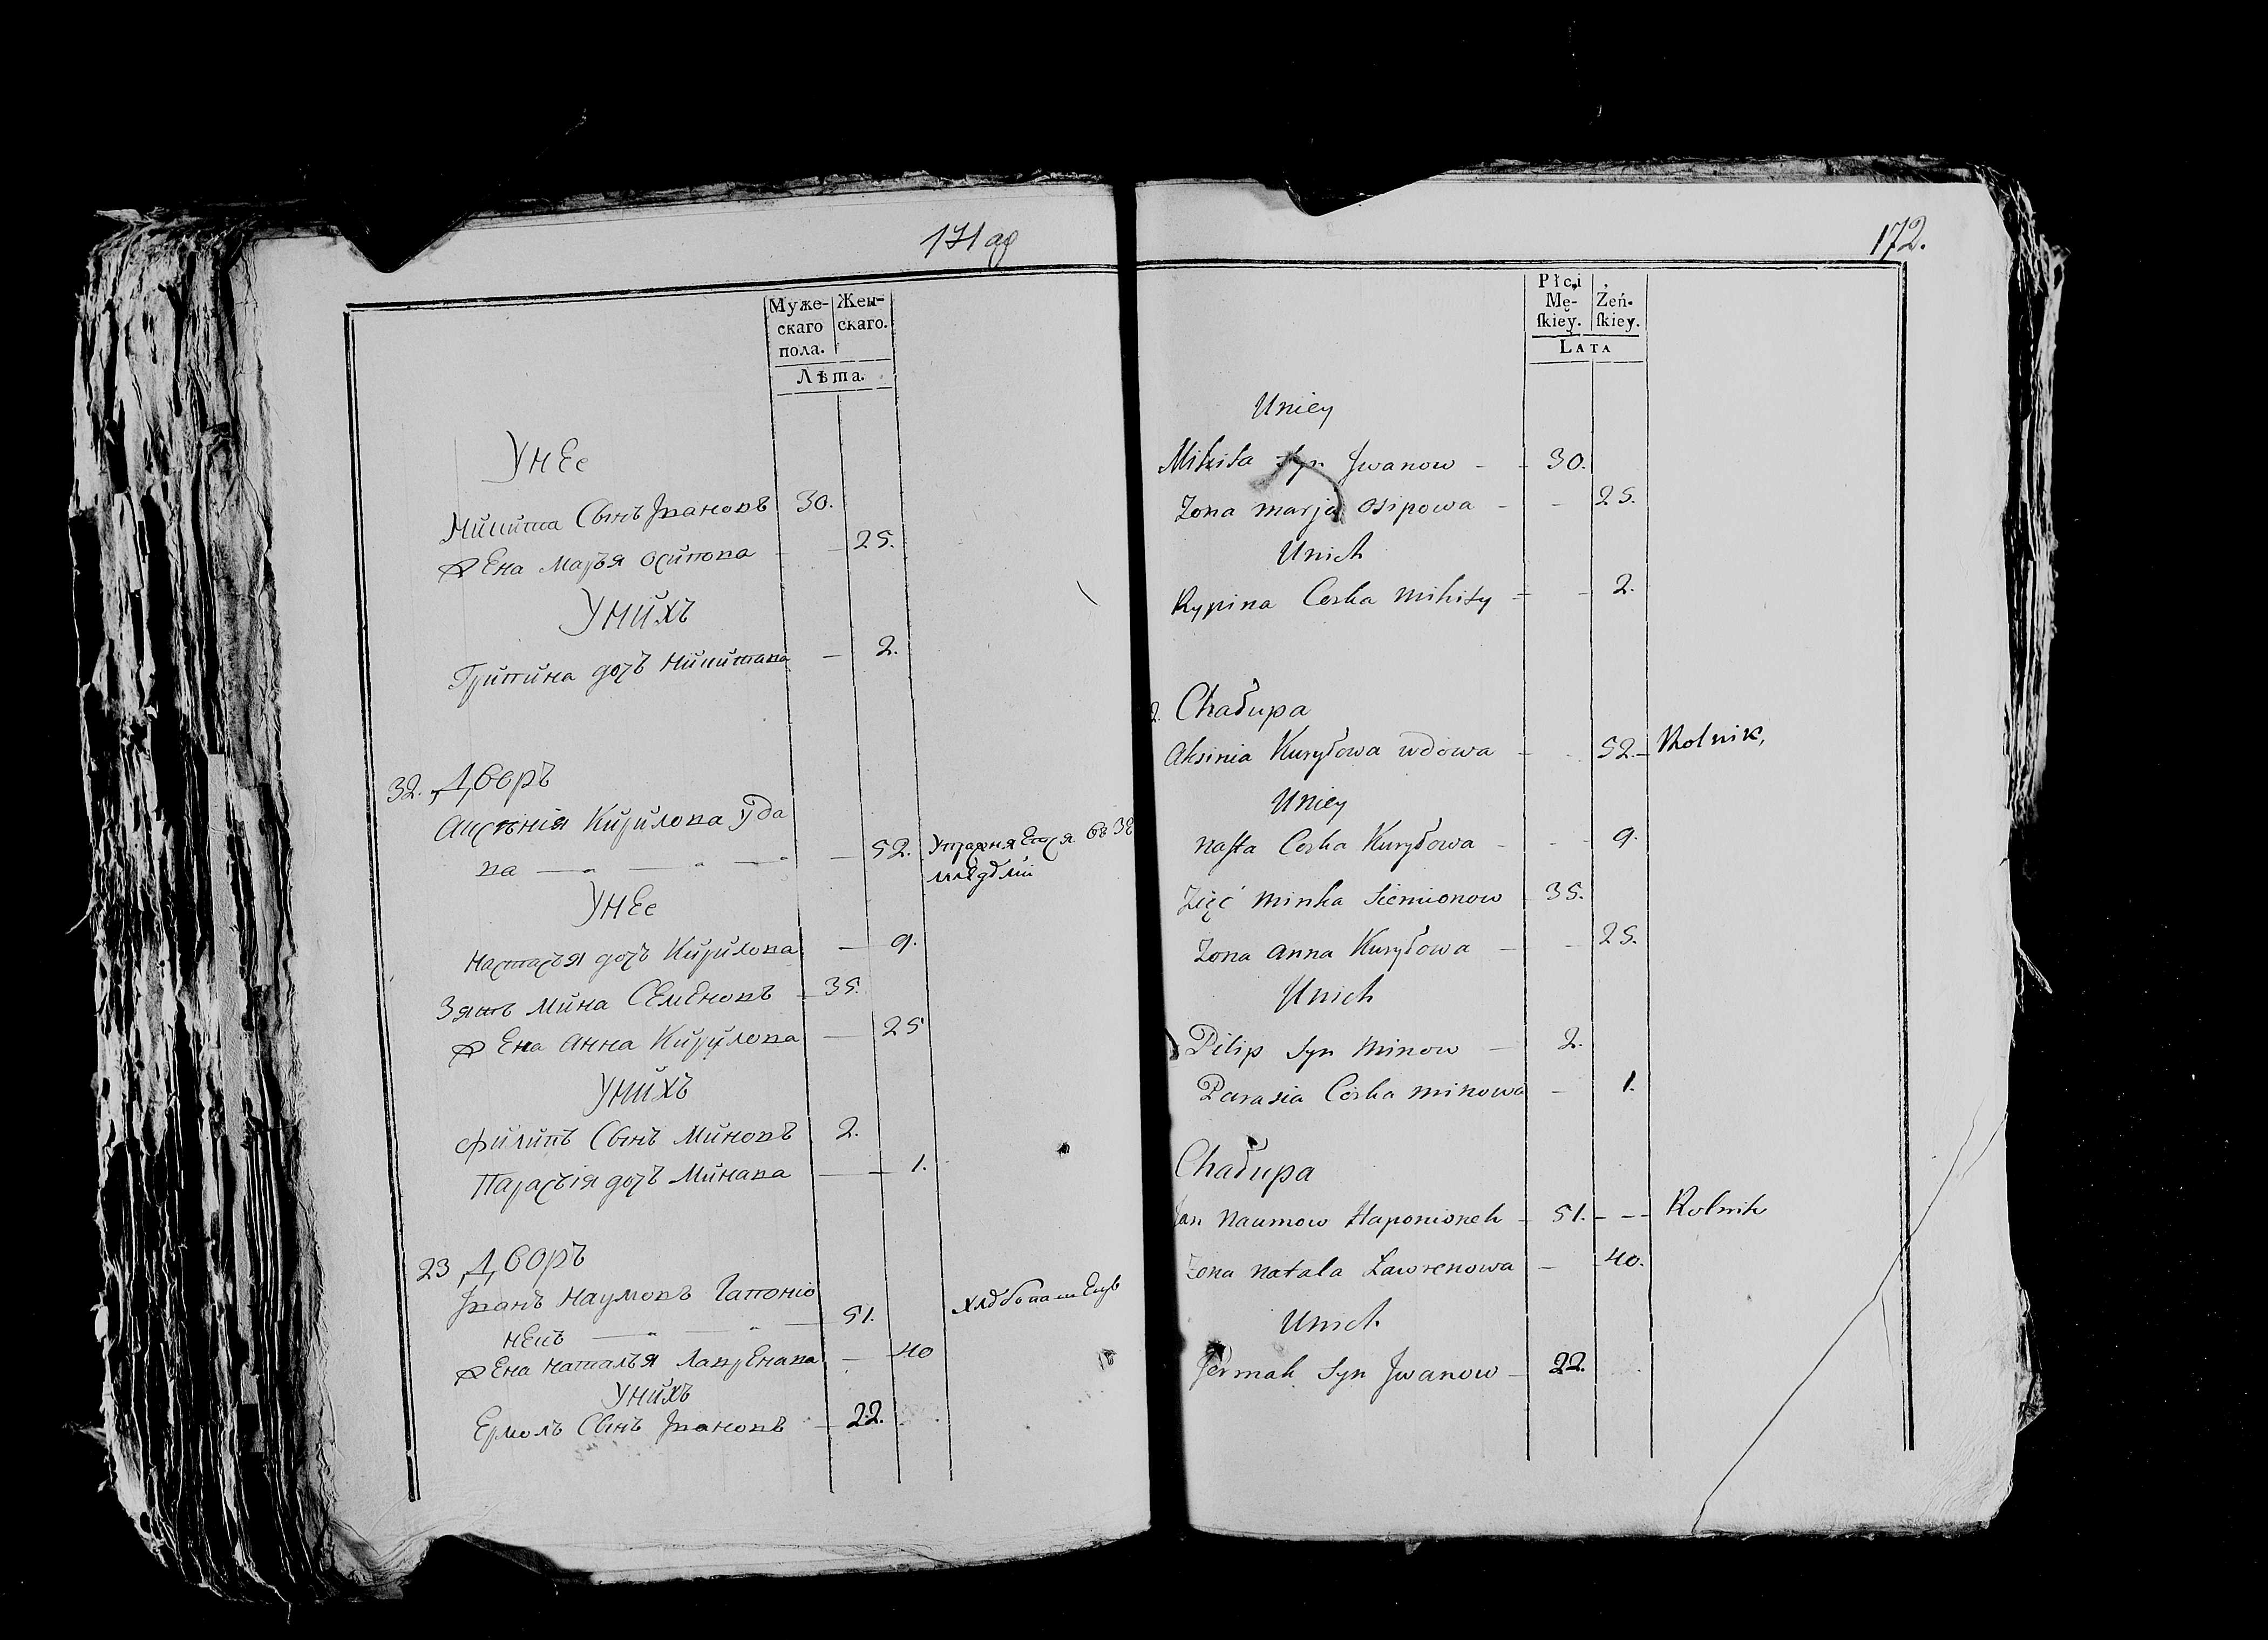 171 об
Муже-
скаго
пола.
Жен-
скаго.
Лѣта.
У нее
Микита Сынъ Ивановъ 30.
жена Марья Осипова 25.
У нихъ
Грипина дочъ Микитава 2.
32. Дворъ
Аксѣнія Кирилова Удо
ва 52. Упражняется въ зе
мледѣлии
У нее
Настасъя дочъ Кирилова 9.
Зять Мина Семеновъ 35.
жена Анна Кирилова 25
У нихъ
Филипъ Сынъ Миновъ 2.
Парасъія дочъ Минава 1.
23 Дворъ
Иванъ Наумовъ Гапоніо
некъ 51. Хлѣбопашецъ
жена Наталъя Лавренава 40
У нихъ
Сынъ Ивановъ 22.
172.
Płci
Mę-
skiey.
Żeń-
skiey.
LATA
U niey
Mikita Syn Jwanow 30.
Zona marja Osipowa 25.
U nich
Rypina Corka Mikity 2.
2. Chałupa
Aksinia Kuryłowa wdowa 52. Rolnik,
U niey
nasta Corka Kuryłowa 9.
Zięć Minka Siemionow 35.
Zona anna Kuryłowa 25.
U nich
Pilip Syn Minow 2.
Parasia Córka minowa 1.
Chałupa
Jan Naumow Haponionek 51. Rolnik
Zona natala Ławrenowa 40.
U nich
Jermak Syn Jwanow 22.